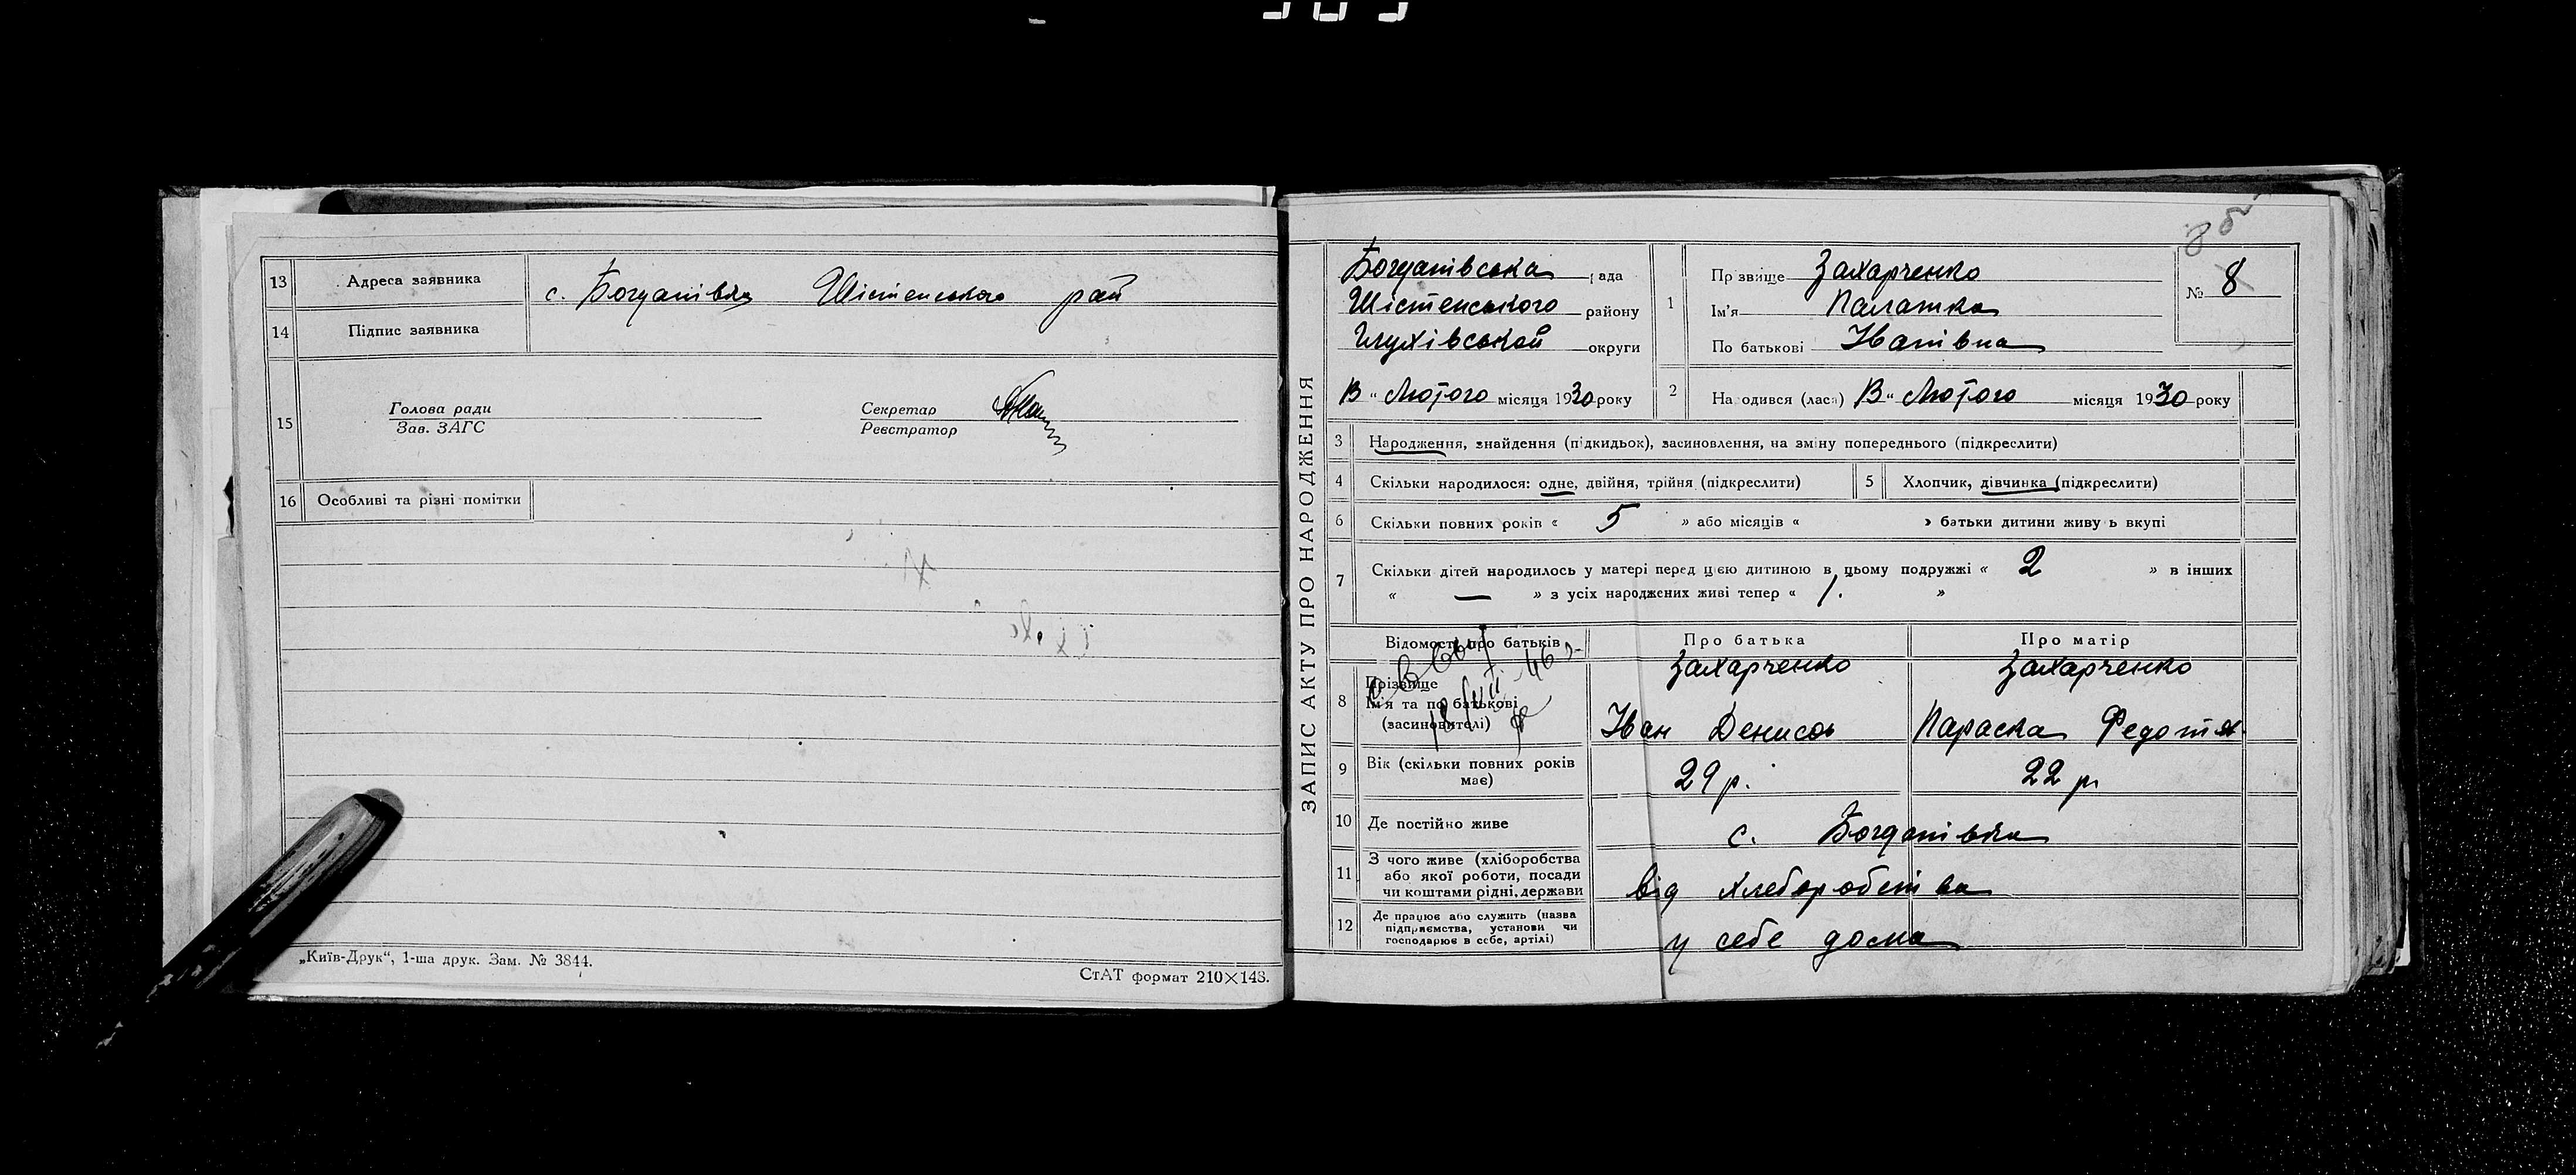 13 Адреса заявника с. Богданівка Шістенського рай
14 Підпис заявника
15 Голова ради Секретар
Зав. ЗАГС Реєстратор
16 Особливі та різні помітки
„Київ-Друк“, 1-ша друк. Зам. № 3844.
СтАТ формат 210×148.
ЗАПИС АКТУ ПРО НАРОДЖЕННЯ
Богданівська рада
Шістенського району
Глухівської округи
В „ Лютого місяця 1930 року
1 Прізвище Захарченко
Ім'я Палашка
По батькові Іванівна
№ 8
2 Народився (лася) В „ Лютого місяця 1930 року
3 Народження, знайдення (підкидьок), засиновлення, на зміну попереднього (підкреслити)
4 Скільки народилося: одне, двійня, трійня (підкреслити)
5 Хлопчик, дівчинка (підкреслити)
6 Скільки повних років « 5 » або місяців « » батьки дитини живуть вкупі
7 Скільки дітей народилось у матері перед цією дитиною в цьому подружжі « 2 » в інших
« — » з усіх народжених живі тепер « 1. »
Відомості про батьків Про батька Про матір
8 Прізвище Захарченко Захарченко
Ім'я та по батькові
(засиновителі) Іван Денисов Параска Федотя
9 Вік (скільки повних років має) 29 р. 22 р
10 Де постійно живе с. Богданівка
11 З чого живе (хліборобства
або якої роботи, посади
чи коштами рідні, держави від хлеборобства
12 Де працює або служить (назва
підприємства, установи чи
господарює в себе, артілі) у себе дома